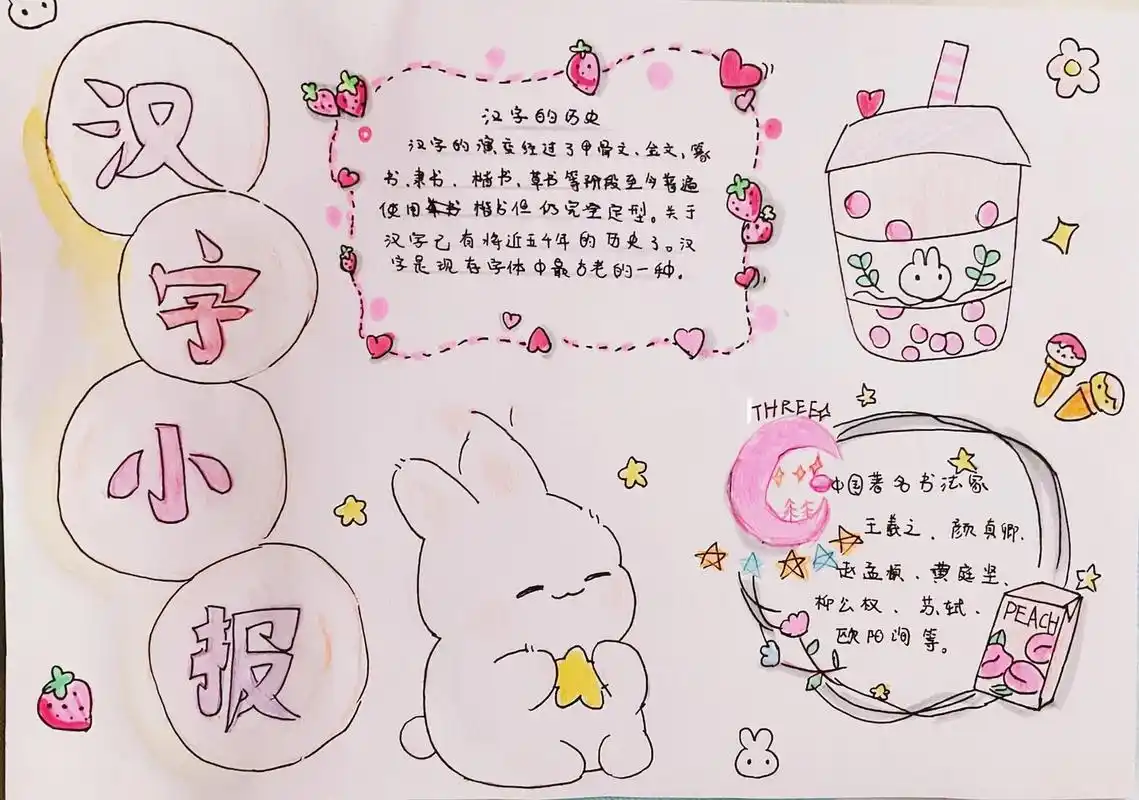 汉
字
小
报
汉字的历史
汉字的演变经过了甲骨文、金文、篆
书、隶书、楷书、草书等阶段至今普遍
使用楷书但仍完全定型。关于
汉字已有将近五千年的历史了。汉
字是现存字体中最古老的一种.
THREE
中国著名书法家
王羲之、颜真卿、
赵孟頫、黄庭坚、
柳公权、苏轼、
欧阳询等。
PEACH